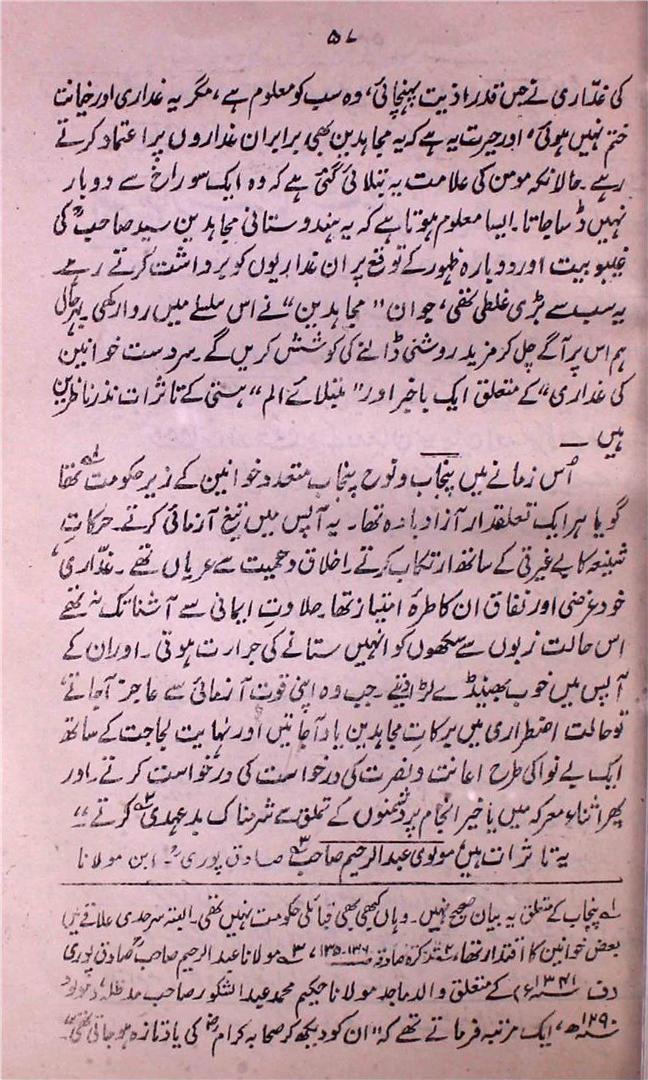 ۵۷
کی غدّاری نے جس قدر اذیت پہنچائی، وہ سب کو معلوم ہے، مگر یہ غداری اور خیانت
ختم نہیں ہوئی، اور حیرت یہ ہے کہ یہ مجاہدین بھی برابر ان غداروں پر اعتماد کرتے
رہے۔ حالانکہ مومن کی علامت یہ بتلائی گئی ہے کہ وہ ایک سوراخ سے دوبار
نہیں ڈسا جاتا۔ ایسا معلوم ہوتا ہے کہ یہ ہندوستانی مجاہدین سید صاحبؒ کی
غیبوبیت اور دوبارہ ظہور کے توقع پر ان غداریوں کو برداشت کرتے رہے
یہ سب سے بڑی غلطی تھی، جو ان "مجاہدین" نے اس سلسلے میں روا رکھی بہرحال
ہم اس پر آگے چل کر مزید روشنی ڈالنے کی کوشش کریں گے۔ سردست خوانین
کی غداری" کے متعلق ایک باخبر اور "مبتلائے الم" ہستی کے تاثرات نذر ناظرین
ہیں —
اُس زمانے میں پنجاب و نوح پنجاب متعدد خوانین کے زیر حکومت تھا
گویا ہر ایک تعلقدار آزاد بادہ تھا۔ یہ آپس میں تیغ آزمائی کرتے۔ حرکاتِ
شنیعہ کا بے غیرتی کے ساتھ ارتکاب کرتے۔ اخلاق و حمیت سے عریاں تھے۔ غدّاری،
خود غرضی اور نفاق ان کا طرۂ امتیاز تھا۔ حلاوتِ ایمانی سے آشنا تک نہ تھے
اس حالت زبوں سے سکھوں کو انہیں ستانے کی جرارت ہوتی۔ اور ان کے
آپس میں خوب بھینڈے لڑاتے۔ جب وہ اپنی قوت آزمائی سے عاجز آجاتے،
تو حالت اضطراری میں برکاتِ مجاہدین یاد آجاتیں اور نہایت لجاجت کے ساتھ
ایک بے نوا کی طرح اعانت و نصرت کی درخواست کی درخواست کرتے۔ اور
پھر اثناء معرکہ میں یا خیر انجام پر دشمنوں کے تملق سے شرمناک بد عہدی کرتے"
یہ تاثرات ہیں مولوی عبدالرحیم صاحب صادق پوریؒ ابن مولانا
۱؎ پنجاب کے متعلق یہ بیان صحیح نہیں۔ وہاں کبھی بھی قبائلی حکومت نہیں تھی۔ البتہ سرحدی علاقے میں
بعض خوانین کا اقتدار تھا، ۲؎ تذکرہ صادقہ ۱۳۵-۱۳۶، ۳؎ مولانا عبدالرحیم صاحبؒ صادق پوری
(ف ۱۳۴۱ھ) کے متعلق والد ماجد مولانا حکیم محمد عبدالشکور صاحب مدظلہ، (مولود
۱۲۹۰ھ، ایک مرتبہ فرماتے تھے کہ "ان کو دیکھ کر صحابہ کرامؓ کی یاد تازہ ہو جاتی تھی"۔